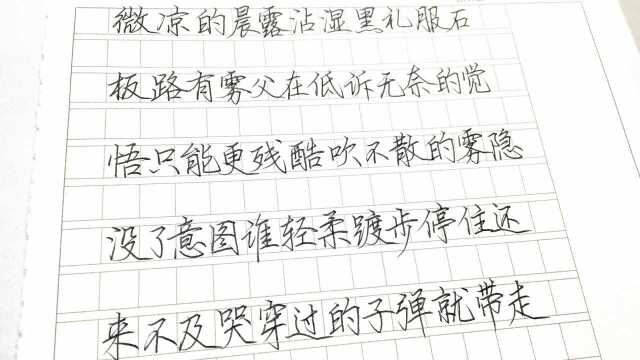 微凉的晨露沾湿黑礼服石
板路有雾父在低诉无奈的觉
悟只能更残酷吹不散的雾隐
没了意图谁轻柔踱步停住还
来不及哭穿过的子弹就带走